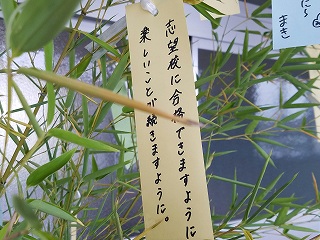 志望校に合格できますように
楽しいことが続きますように。
に〜
まき